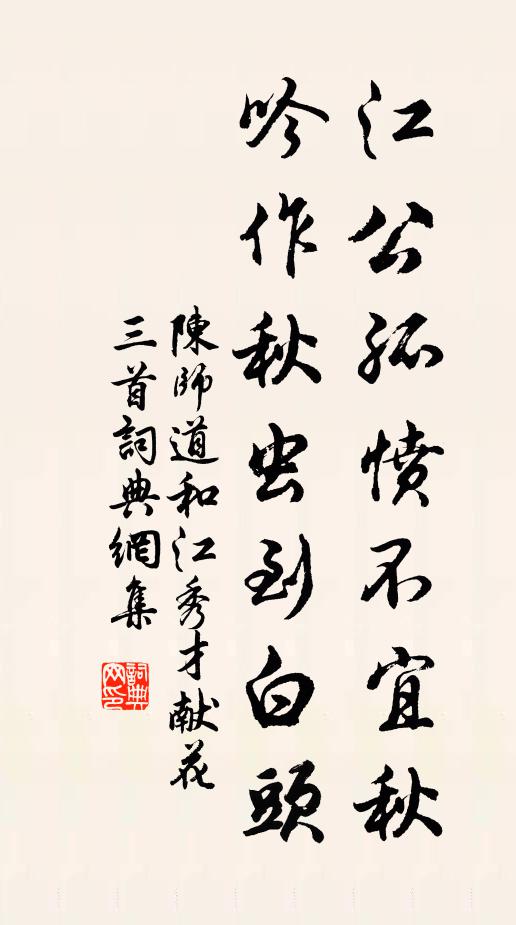 江公孤憤不宜秋
吟作秋虫到白頭
陳師道和江秀才献花
三首詞典網集
詞典网印